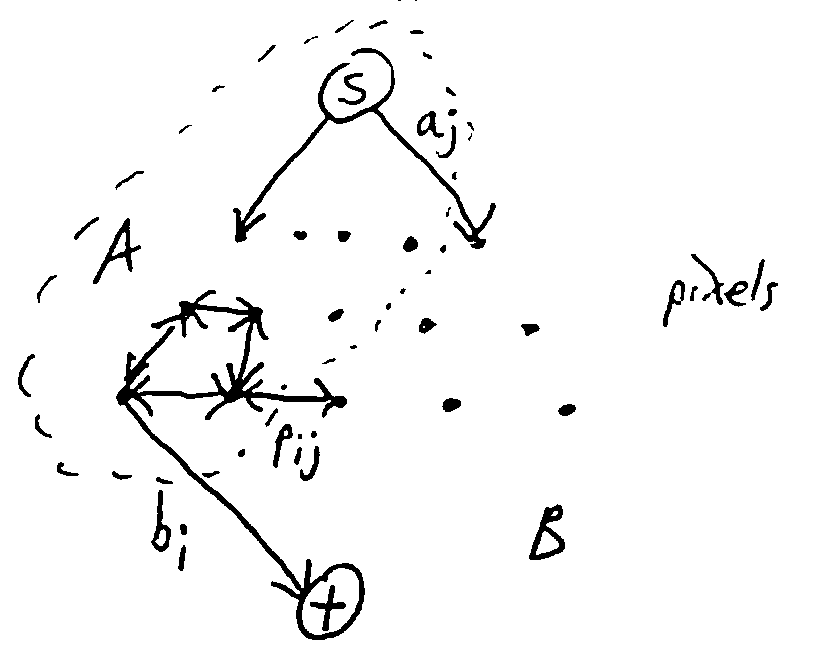 S
aj
A
pixels
pij
bi
B
t